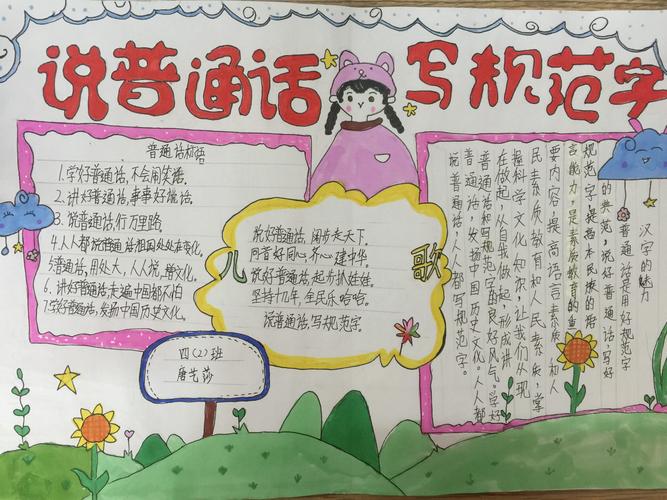 说普通话 写规范字
普通话标语
1.学好普通话,不会闹笑话.
2.讲好普通话,事事好说话.
3.说普通话,行万里路.
4.人人都说普通话祖国处处在变化.
5.普通话,用处大,人人说,树文化.
6.讲好普通话,走遍中国都不怕
7.学好普通话,发扬中国历史文化.
儿歌
说好普通话,阔步走天下.
同音好同心,齐心建中华
说好普通话,起步抓娃娃.
坚持十几年,全民乐哈哈.
说普通话,写规范字.
四(2)班
艺莎
汉字的魅力
普通话是用好规范字
的典范,说好普通话,写好
规范字,提高本民族的语
言能力,是素质教育的重
要内容,提高语言素质,和人
民素质教育和人民素质,掌
握科学文化知识,让我们从现
在做起,从自我做起,形成讲
普通话和写规范字的良好风气。学好
普通话,发扬中国历史文化。人人都
说普通话,人人都写规范字。